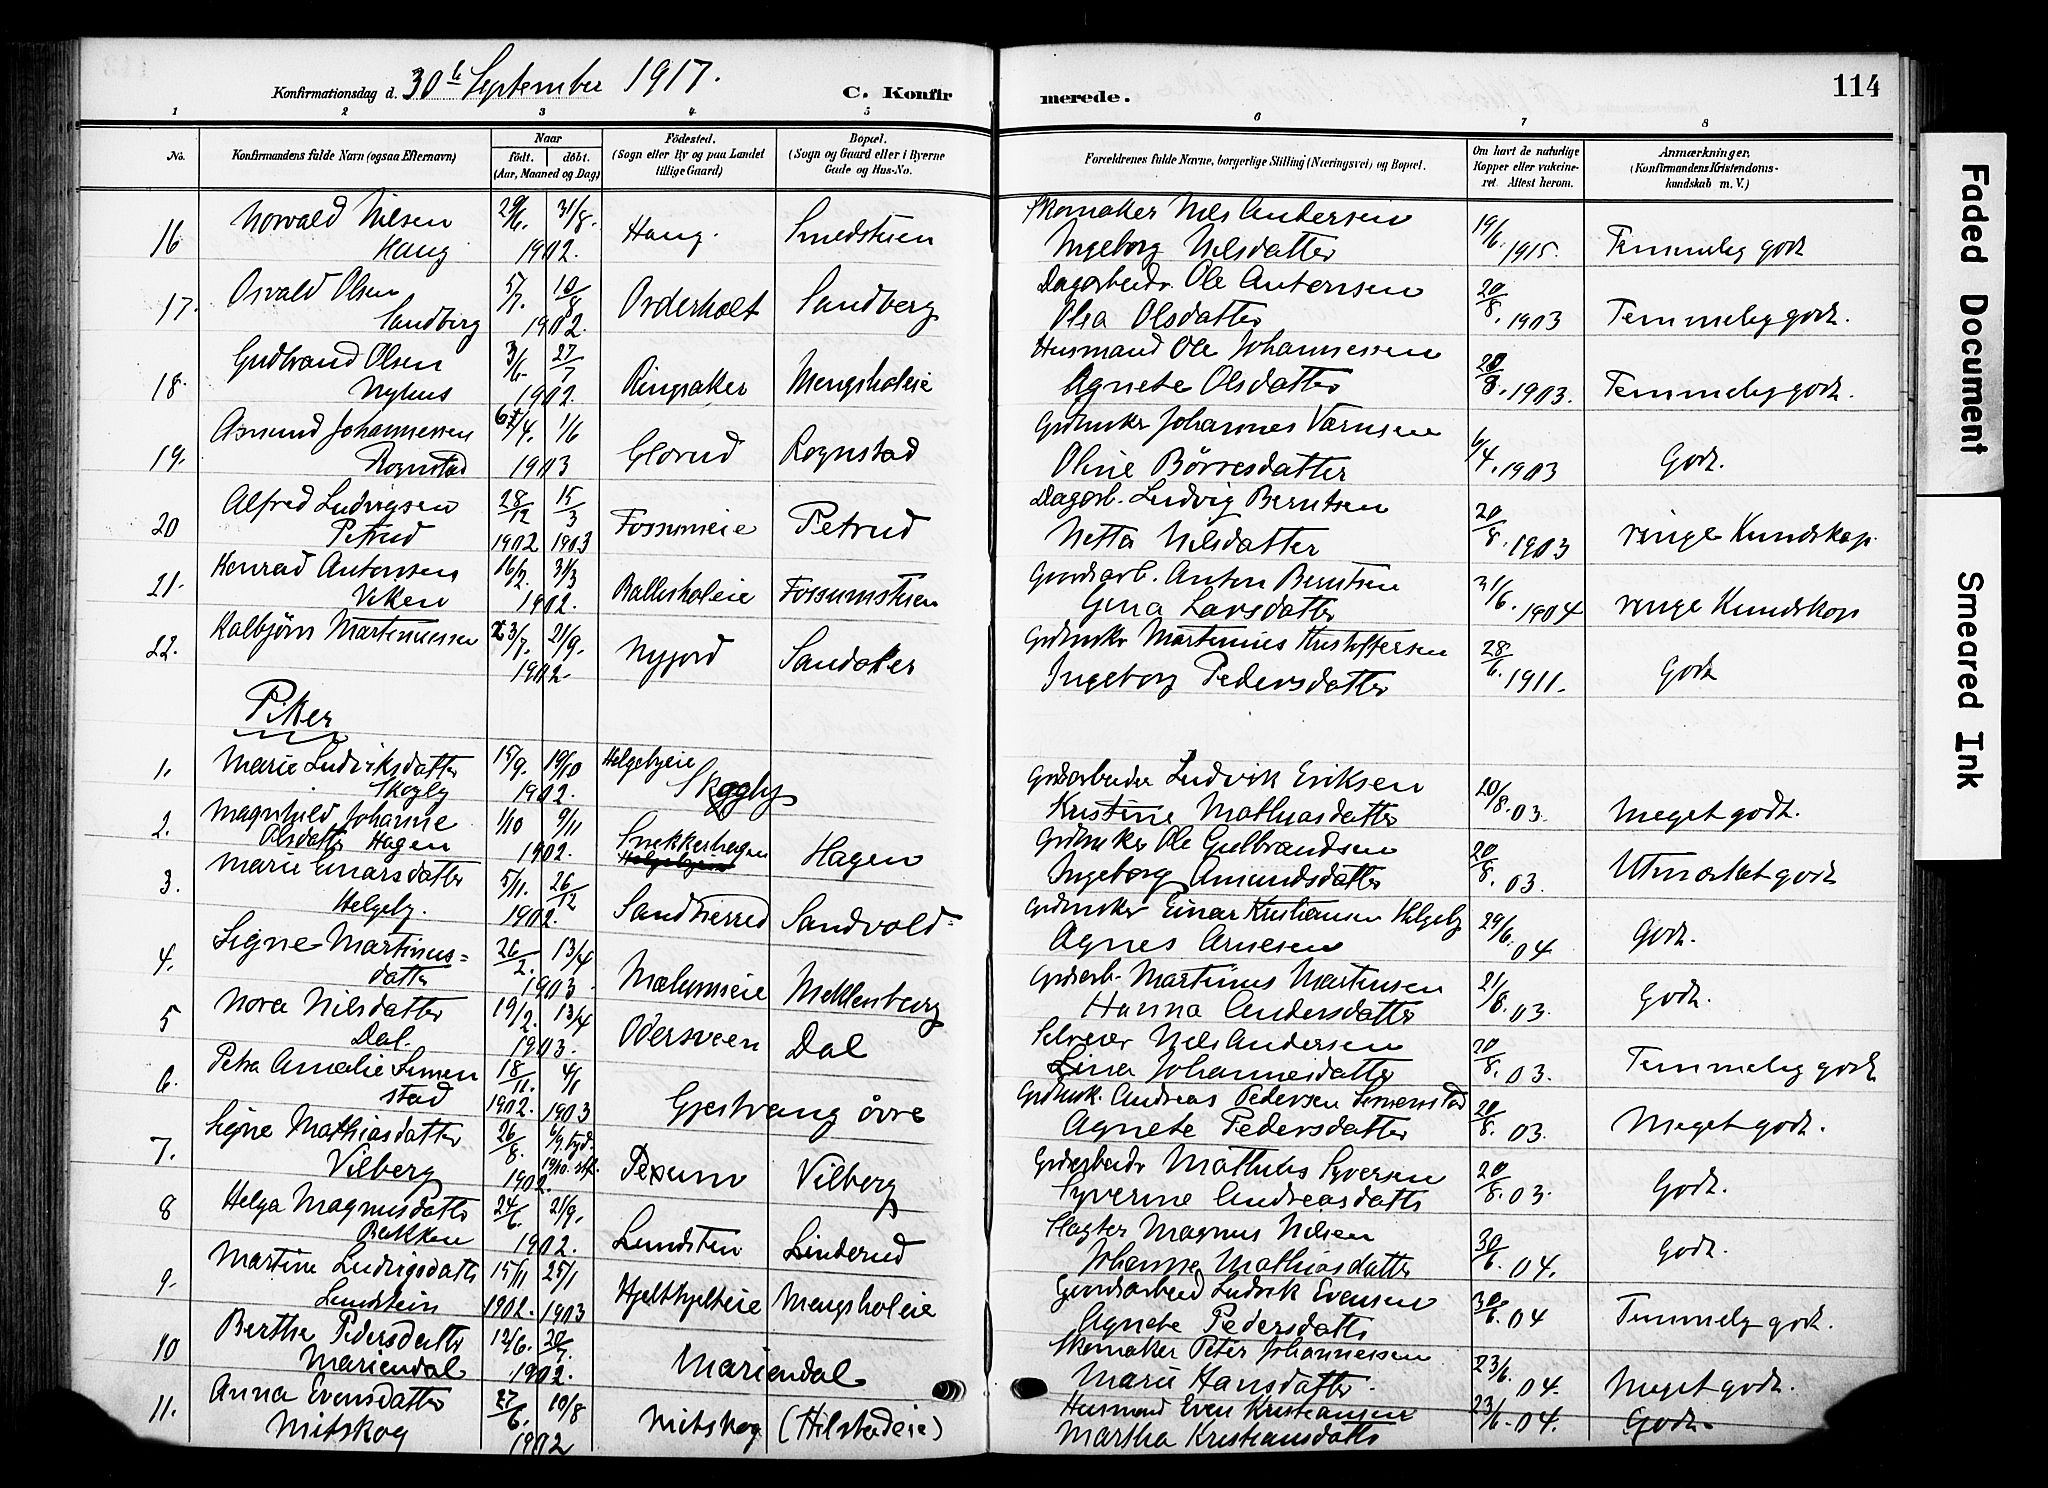 Konfirmationsdag d. 30te September 1917.
C. Konfirmerede.
114
1 2 3 4 5 6 7 8
No.
Konfirmandens fulde Navn (ogsaa Efternavn)
Naar
födt. döbt.
(Aar, Maaned og Dag)
Födested.
(Sogn eller By og paa Landet
tillige Gaard)
Bopæl.
(Sogn og Gaard eller i Byerne
Gade og Hus-No.
Forældrenes fulde Navne, borgerlige Stilling (Næringsvei) og Bopæl.
Om havt de naturlige
Kopper eller vakcine-
ret. Attest herom.
Anmærkninger.
(Konfirmandens Kristendoms-
kundskab m. V.)
16 Norvald Nilsen 29/6. 31/8. Haug. Smedstuen Skomaker Nils Andersen 19/6 1915. Temmelig godt
Haug 1902. Ingeborg Nilsdatter
17. Osvald Olsen 5/7. 10/8 Orderholt Sandberg Dagarbeidr. Ole Antonsen 20/8. 1903 Temmelig godt.
Sandberg 1902. Olea Olsdatter
18. Gudbrand Olsen 3/6. 27/7 Ringsaker Mengsholeie Husmand Ole Johannessen 20/8. 1903. Temmelig godt.
Nyhus 1902. Agnete Olsdatter
19. Asmund Johannessen /4. 1/6 Glorud Rognstad Grdbruker Johannes Værnsen 6/4. 1903 Godt.
Rognstad 1903 Oline Börresdatter
20 Alfred Ludvigsen 28/12 15/3 Fossumeie Petrud Dagarb. Ludvig Berntsen 20/8. 1903 ringe Kundskap
Petrud 1902 1903 Netta Nilsdatter
21. Konrad Antonsen 16/2. 31/3 Ballisholeie Fossumstuen Gaardsarb. Anton Berntsen 31/6. 1904 ringe Kundskap
Viken 1902. Gina Larsdatter
22. Kolbjörn Martinuessen 23/7. 21/9. Nyjord Sandaker Grdbruker Martinius Kristoffersen 28/6. 1911. Godt
1902. Ingeborg Pedersdatter
Piker
1. Marie Ludviksdatter 15/9. 19/10 Helgebyeie Gaardsarbeider Ludvik Eriksen 20/8. 03. Meget godt.
Skogby 1902. Skogby Kristine Mathiasdatter
2. Magnhild Johanne 1/10 9/11 Snekkerhagen Hagen Grdbruker Ole Gulbrandsen 20/8. 03. Utmærket godt
Olsdatter Hagen 1902. Helgebyeie Ingeborg Amundsdatter
3. Marie Einarsdatter 5/11. 26/12 Sandhierred Sandvold Grdbruker Einar Kristiansen Helgeby 29/6. 04 Godt.
Helgeby. 1902. Agnes Arnesen
4. Signe Martinus= 26/2. 13/4 Mælumeie Meklenborg Grdsarb. Martinus Martinsen 21/8. 03. Godt.
datter 1903. Hanna Andersdatter
5 Nora Nilsdatter 19/2. 13/4 Odersveen Dal Selveier Nils Andersen 20/8. 03. Temmelig godt
Dal. 1903. Lina Johannesdatter
6. Petra Amalie Simen 18/11. 4/1 Gjestvang övre Grdbruk. Andreas Pedersen Simenstad 20/8. 03. Meget godt.
stad 1902. 1903 Agnete Pedersdatter
7. Signe Mathiasdatter 26/8. 6/9. hjd. Pexum Vilberg Grdsarbeidr Mathias Syversen 20/8. 03. Godt.
Vilberg 1902. 19/10. stf. Syverine Andreasdattr
8 Helga Magnusdattr 24/6. 21/9. Lundsten Linderud Slagter Magnus Nilsen 30/6. 04. Godt.
Bakken 1902. Johanne Mathiasdatter
9. Martine Ludvigsdattr 15/11 25/1 Hjelthjelteie Mengsholeie Gaardsarbeid Ludvik Evensen 30/6. 04 Temmelig godt.
Lundstein 1902. 1903 Agnete Pedersdattr
10 Berthe Pedersdatter 12/6. 20/7. Mariendal Skomaker Peter Johannessen 23/6. 04. Meget godt.
Mariendal 1902. Marie Hansdatter.
11. Anna Evensdatter 27/6. 10/8 Nitskog (Hilstadeie) Husmand Even Kristiansen 23/6. 04. Godt.
Nitskog 1902 Martha Kristiansdattr
Faded Document
Smeared Ink